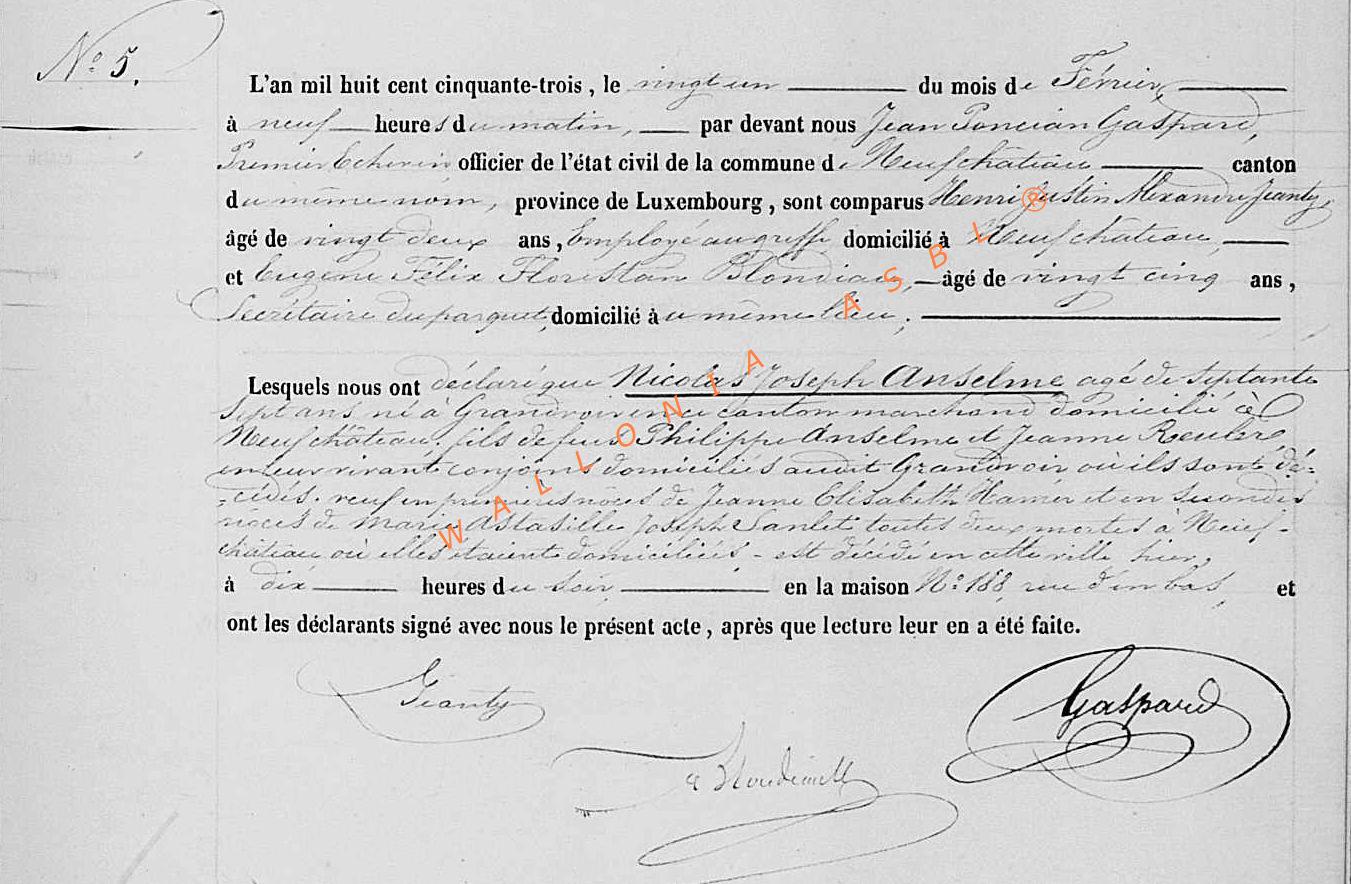 N° 5.
L'an mil huit cent cinquante-trois, le vingt un du mois de Février,
à neuf heures du matin, par devant nous Jean Poncian Gaspard,
Premier Echevin officier de l'état civil de la commune de Neufchâteau canton
du même nom, province de Luxembourg, sont comparus Henri Justin Alexandre Jeanty,
âgé de vingt deux ans, Employé au greffe domicilié à Neufchâteau,
et Eugène Félix Florestan Blondiau, âgé de vingt cinq ans,
Secrétaire du parquet, domicilié au même lieu;
Lesquels nous ont déclaré que Nicolas Joseph Anselme agé de septante
sept ans né à Grandvoir en ce canton marchand domicilié à
Neufchâteau, fils de feus Philippe Anselme et Jeanne
en leur vivant conjoins domiciliés audit Grandvoir où ils sont dé-
-cédés. veuf en premières nôces de Jeanne Elisabeth Hamer et en secondes
nôces de Marie Joseph toutes deux mortes à Neuf-
château où elles étaient domiciliés - est décédé en cette ville hier,
à dix heures du soir, en la maison N° 188, rue d'en bas, et
ont les déclarants signé avec nous le présent acte, après que lecture leur en a été faite.
Jeanty
Gaspard
WALLONIA ASBL ®